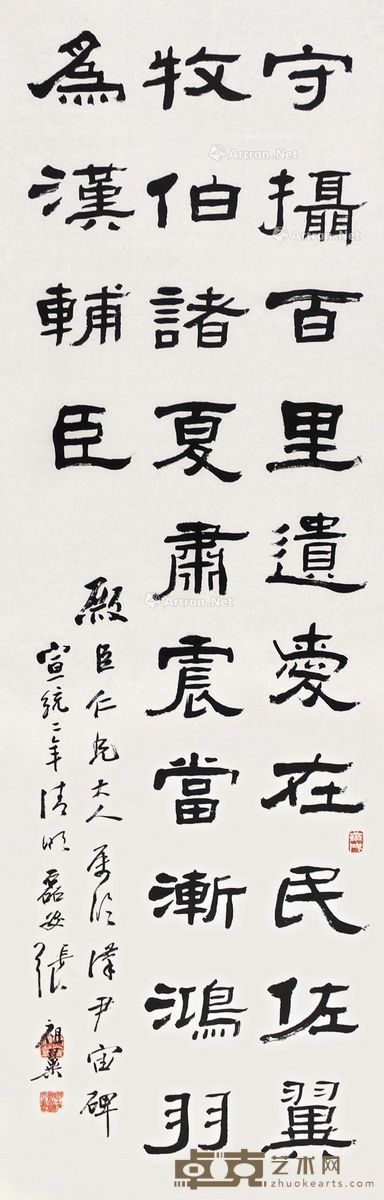 守攝百里遺愛在民佐翼
牧伯諸夏肅震當漸鴻羽
為漢輔臣
殿臣仁兄大人屬臨漢尹宙碑
宣統二年清明磊盦張祖翼
Artron.Net
Artron.Net
Artron.Net
卓克艺术网
zhuokearts.com